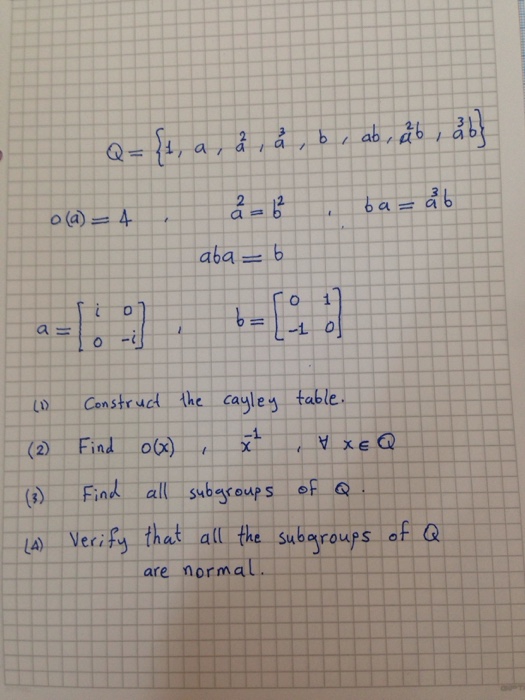 Q = {1, a, a², a³, b, ab, a²b, a³b}
o(a) = 4 , a² = b² , ba = a³b
aba = b
a = [i 0; 0 -i] , b = [0 1; -1 0]
(1) Construct the cayley table.
(2) Find o(x) , x⁻¹ , ∀ x ∈ Q
(3) Find all subgroups of Q.
(4) Verify that all the subgroups of Q
are normal.